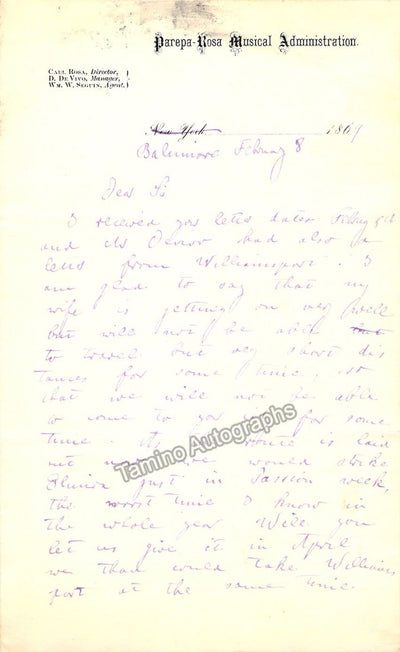 Parepa-Rosa Musical Administration.
CARL ROSA, Director,
D. DE VIVO, Manager,
WM. W. SEGUIN, Agent.
New York 1869
Baltimore February 8
Dear Sir
I received your letter dated
and Mr had also a
letter from Williamsport. I
am glad to say that my
wife is getting on very well
but will not be able
to travel but very short dis
tances for some time, so
that we will not be able
to come to you for some
time. As the route is laid
out now we would strike
Elmira just in Passion week,
the worst time I know in
the whole year. Will you
let us give it in April
we then could take Williams
port at the same time.
Tamino Autographs